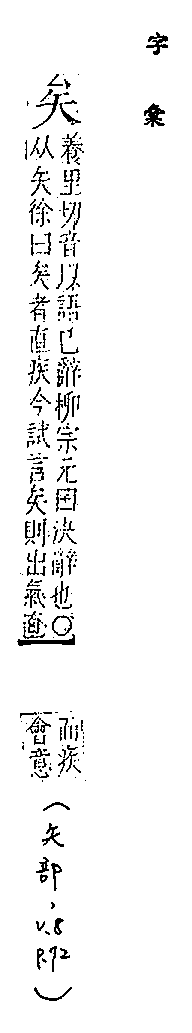 字彙
矣
養里切音以語已辭柳宗元曰決辭也〇
从矢徐曰矣者直疾今試言矣則出氣直
而疾
會意
(矢部，
v.8
p.92)